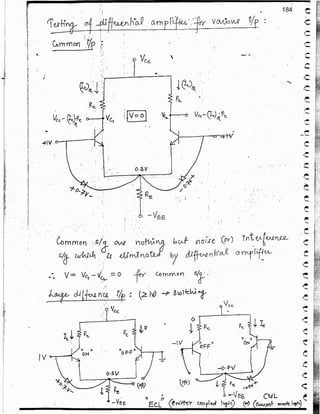 184
Testing of differential amplifier for various I/p :
Common I/p :
Vcc
Rc
Rc
V=0
+1V
+1V
0.3V
+0.7V-
RE
-VEE
Common s/g are nothing but noise (or) interference
s/g which is eliminated by differential amplifier
∴ V = Vc₁ - Vc₂ = 0 for common s/g.
Large difference I/p : (≥1V) → switching
Vcc
Vcc
Rc
Rc
Rc
Rc
1V
"ON"
"OFF"
-1V
"OFF"
"ON"
0.3V
-0.7V
(or)
RE
-VEE
-VEE
CML
"ECL" (emitter coupled logic) (or) (current mode logic)